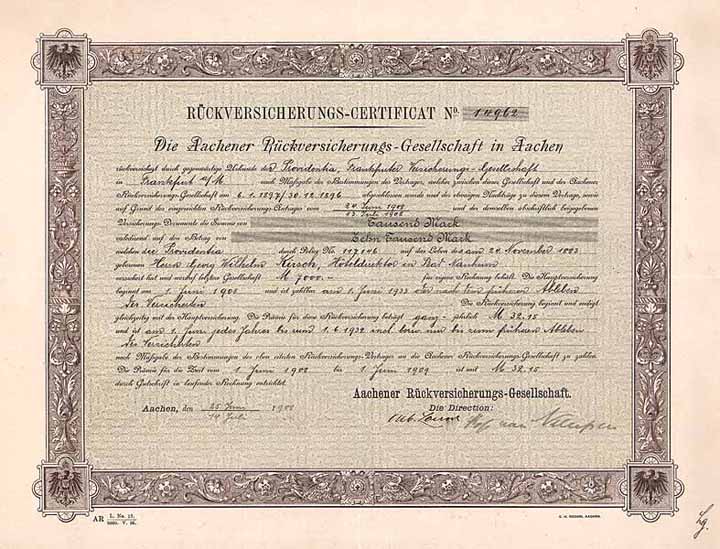 RÜCKVERSICHERUNGS-CERTIFICAT No. 14962
Die Aachener Rückversicherungs-Gesellschaft in Aachen
rückversichert durch gegenwärtige Urkunde der Providentia, Frankfurter Versicherungs-Gesellschaft
in Frankfurt a/M. nach Massgabe der Bestimmungen des Vertrages, welcher zwischen dieser Gesellschaft und der Aachener
Rückversicherungs-Gesellschaft am 6.1.1897/30.12.1896 abgeschlossen wurde und der etwaigen Nachträge zu diesem Vertrage, sowie
auf Grund des eingereichten Rückversicherungs-Antrages vom 24. Juni 1908 und der demselben abschriftlich beigegebenen
13. Juli 1908
Versicherungs-Documente die Summe von Tausend Mark
valedierend auf den Betrag von Zehn Tausend Mark
welchen die Providentia durch Police No. 117146 auf das Leben des am 24. November 1883
geborenen Herrn Georg Wilhelm Kirsch, Hoteldirektor in Bad Nauheim
versichert hat und worauf letztere Gesellschaft M 7000.- für eigene Rechnung behält. Die Hauptversicherung
beginnt am 1 Juni 1908 und ist zahlbar am 1 Juni 1933 oder nach dem früheren Ableben
des Versicherten Die Rückversicherung beginnt und endigt
gleichzeitig mit der Hauptversicherung. Die Prämie für diese Rückversicherung beträgt ganz-jährlich M 32.15
und ist am 1 Juni jedes Jahres bis zum 1.6.1932 incl. bzw. nur bis zum früheren Ableben
des Versicherten
nach Massgabe der Bestimmungen des oben citirten Rückversicherungs-Vertrages an die Aachener Rückversicherungs-Gesellschaft zu zahlen.
Die Prämie für die Zeit vom 1 Juni 1908 bis 1 Juni 1909 ist mit M 32.15
durch Gutschrift in laufender Rechnung entrichtet.
Aachener Rückversicherungs-Gesellschaft.
Aachen, den 25 Juni 1908
14 Juli
Die Direction:
AR I. No. 15.